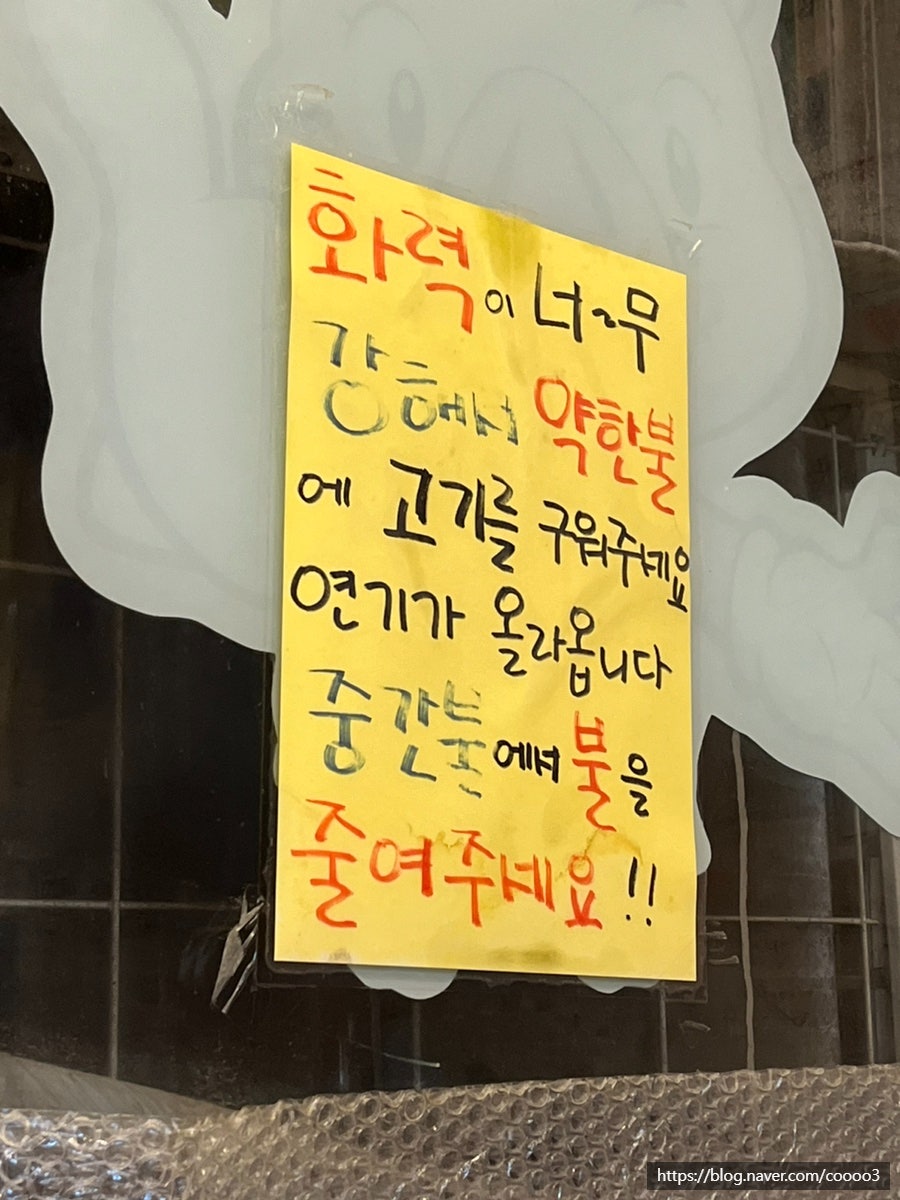 화력이 너무
강해서 약한불
에 고기를 구워주세요
연기가 올라옵니다
중간불에서 불을
줄여주세요!!
https://blog.naver.com/coooo3